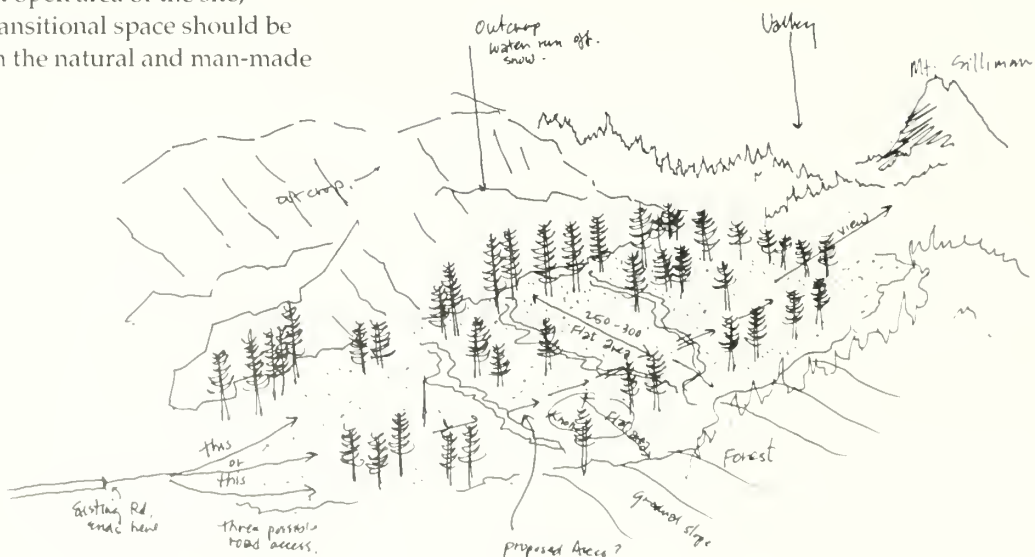 open area of the site,
ansitional space should be
n the natural and man-made
Outcrop
water run off.
snow.
Valley
Mt. Silliman
outcrop.
view
250-300
Flat area
Knoll
Flat area
this
or
this
Existing Rd.
ends here
three possible
road access.
proposed Area?
Forest
gradual slope